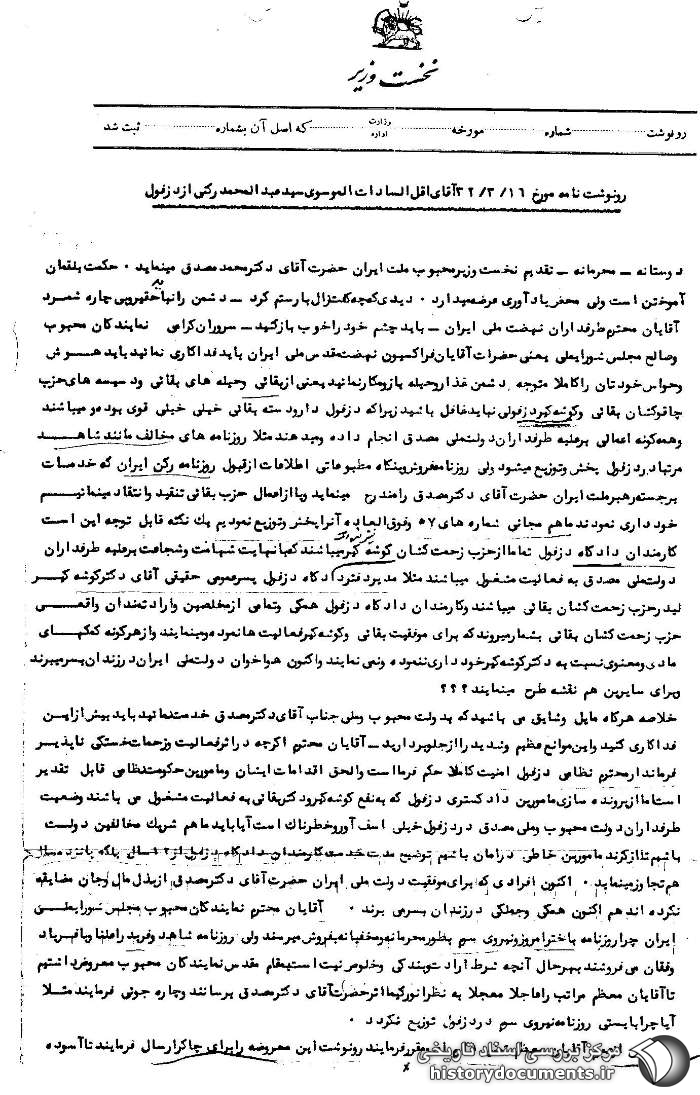 نخست وزیر
رونوشت شماره مورخه وزارت اداره که اصل آن بشماره ثبت شد
رونوشت نامه مورخ ۳۲/۳/۱۶ آقای اقل السادات الموسوی سید عبد المحمد رکنی از دزفول
دوستانه ــ محرمانه ــ تقدیم نخست وزیر محبوب ملت ایران حضرت آقای دکتر محمد مصدق مینماید ۰ حکمت بلقمان
آموختن است ولی محض یادآوری عرضه میدارد ۰ دیدی که چه گفت زال با رستم گرد ــ دشمن را نباید حقیر و بی چاره شمرد
آقایان محترم طرفداران نهضت ملی ایران ــ باید چشم خود را خوب باز کنید ــ سروران گرامی نمایندگان محبوب
وصالح مجلس شورایملی یعنی حضرات آقایان فراکسیون نهضت مقدس ملی ایران باید فداکاری نمائید باید هـــوش
وحواس خودتان را کاملا متوجه دشمن غدار و حیله باز و مکار نمائید یعنی از بقائی وحیله های بقائی ودسیسه های حزب
چاقوکشان بقائی وگوشه گیر دزفولی نباید غافل باشید زیرا که دزفول دارودسته بقائی خیلی خیلی قوی بوده و میباشند
وهمه گونه اعمالی بر علیه طرفداران دولت ملی مصدق انجام داده ومیدهند مثلا روزنامه های مخالف مانند شاهـــد
مرتبا در دزفول پخش وتوزیع میشود ولی روزنامه فروش وبنگاه مطبوعاتی اطلاعات از قبول روزنامه رکن ایران که خدمات
برجسته رهبر ملت ایران حضرت آقای دکتر مصدق را مندرج مینماید ویا از اعمال حزب بقائی تنقید وانتقاد مینمائیـــم
خودداری نمودند ما هم مجانی شماره های ۵۷ وفوق العاده آنرا پخش وتوزیع نمودیم یک نکته قابل توجه این اســت
کارمندان دادگاه دزفول تماما از حزب زحمت کشان گوشه گیر میباشند که با نهایت شهامت وشجاعت بر علیه طرفداران
دولت ملی مصدق به فعالیت مشغول میباشند مثلا مدیر دفتر دادگاه دزفول پسر عموی حقیقی آقای دکتر گوشه گیـــر
لیدر حزب زحمت کشان بقائی میباشند وکارمندان دادگاه دزفول همگی وتمامی از مخلصین وارادتمندان واقعـــی
حزب زحمت کشان بقائی بشمار میروند که برای موفقیت بقائی وگوشه گیر فعالیت ها نموده ومینمایند واز هرگونه کمکهای
مادی ومعنوی نسبت به دکتر گوشه گیر خودداری ننموده ونمی نمایند واکنون هواخوان دولت ملی ایران در زندان بسر میبرند
وبرای سایرین هم نقشه طرح مینمایند ؟؟؟
خلاصه هرگاه مایل وشایق می باشید که بدولت محبوب وملی جناب آقای دکتر مصدق خدمت نمائید باید بیش از ایـن
فداکاری کنید واین موانع عظیم وشدید را از جلو بردارید ــ آقایان محترم اگرچه در اثر فعالیت وزحمات خستگی ناپذیــر
فرماندار محترم نظامی دزفول امنیت کاملا حکم فرما است والحق اقدامات ایشان ومامورین حکومت نظامی قابل تقدیر
است اما از پرونده سازی مامورین دادگستری دزفول که به نفع گوشه گیر ودکتر بقائی به فعالیت مشغول می باشند وضعیت
طرفداران دولت محبوب وملی مصدق در دزفول خیلی اسف آور وخطرناک است آیا باید ما هم شریک مخالفین دولــت
باشیم تا از گزند مامورین خاطی در امان باشیم توضیح مدت خدمت کارمندان دادگاه دزفول از ۱۲ سال بلکه پانزده سال
هم تجاوز مینماید ۰ اکنون افرادی که برای موفقیت دولت ملی ایران حضرت آقای دکتر مصدق از بذل مال وجان مضایقه
نکرده اند هم اکنون همگی وجملگی در زندان بسر می برند ۰ آقایان محترم نمایندگان محبوب مجلس شورایملـــی
ایران چرا روزنامه باختر امروز ونیروی سوم بطور محرمانه ومخفیانه بفروش میرسند ولی روزنامه شاهد وفرید را علنا وبا فریاد
وفغان می فروشند بهرحال آنچه شرط ارادت وبندگی وخلوص نیت است بمقام مقدس نمایندگان محبوب معروض داشتیم
تا آقایان معظم مراتب را عاجلا معجلا به نظر انور کیمیا اثر حضرت آقای دکتر مصدق برسانند وچاره جوئی فرمایند مثــلا
آیا چرا بایستی روزنامه نیروی سوم در دزفول توزیع نگردد ۰
آقایان مقرر فرمایند رونوشت این معروضه را برای چاکر ارسال فرمایند تا آسوده
مرکز بررسی اسناد تاریخی
historydocuments.ir